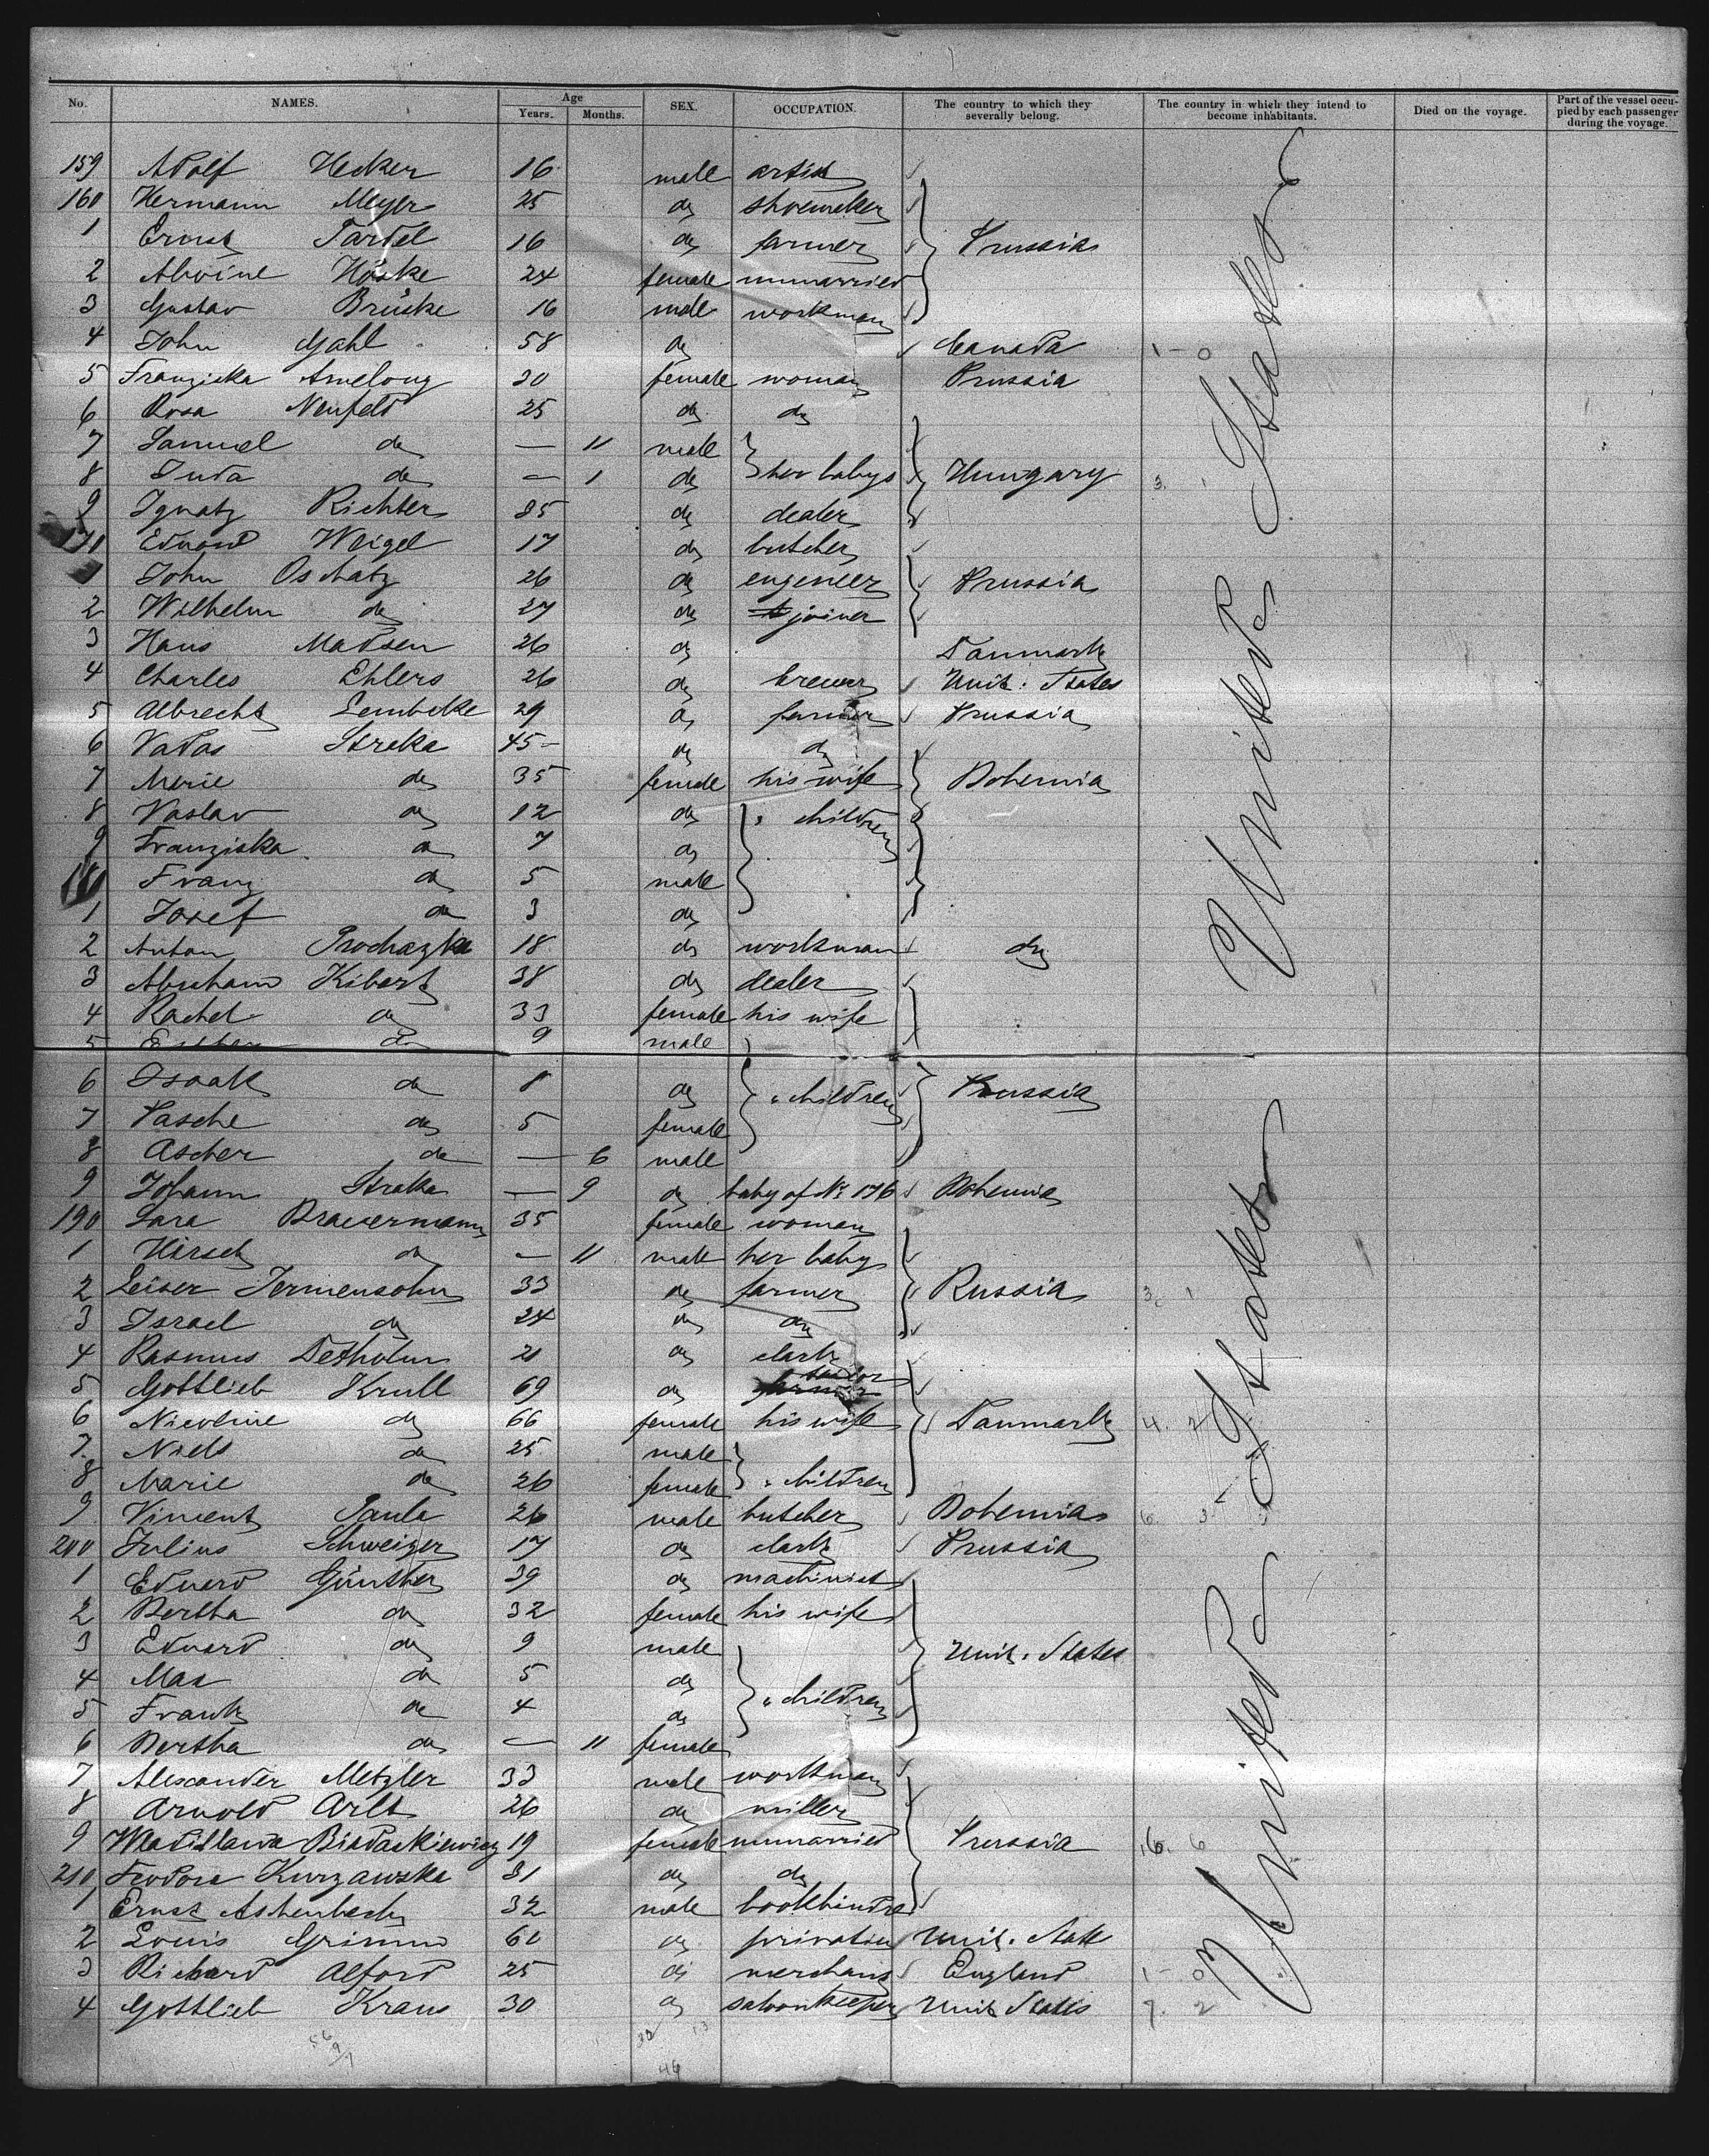 No. NAMES. Age Years. Months. SEX. OCCUPATION. The country to which they severally belong. The country in which they intend to become inhabitants. Died on the voyage. Part of the vessel occupied by each passenger during the voyage.
159 Adolf Hecker 16 male artist
160 Hermann Meyer 25 do shoemaker
1 Ernst Tardel 16 do farmer Prussia
2 Alwine Höske 24 female unmarried
3 Gustav Brüske 16 male workman
4 John Gahl 58 do Canada 1 - 0
5 Franziska Amelong 30 female woman Prussia
6 Rosa Neufeld 25 do do
7 Samuel do — 11 male
8 Juda do — 1 do her babys Hungary 3. 1
9 Ignatz Richter 25 do dealer
170 Eduard Weigel 17 do butcher
1 John Oschatz 26 do engeneer Prussia
2 Wilhelm do 27 do joiner
3 Hans Madsen 26 do Danmark
4 Charles Ehlers 26 do brewer Unit. States
5 Albrecht Lembcke 29 do farmer Prussia
6 Vadas Straka 45 do do
7 Marie do 35 female his wife Bohemia
8 Vaslav do 12 do " children
9 Franziska do 7 do
180 Franz do 5 male
1 Josef do 3 do
2 Anton Prochazka 18 do workman do
3 Abraham Kibart 38 do dealer
4 Rachel do 33 female his wife
5 Esther do 9 male
6 Isaak do 8 do " children Prussia
7 Pasche do 5 female
8 Ascher do — 6 male
9 Johann Straka — 9 do baby of No 176 Bohemia
190 Sara Bravermann 35 female woman
1 Hirsch do — 11 male her baby
2 Leiser Jermensohn 33 do farmer Russia 3. 1
3 Israel do 24 do do
4 Rasmus Detholm 21 do clark
5 Gottlieb Krull 69 do tailor
6 Nicoline do 66 female his wife Danmark 4.
7 Niels do 25 male
8 Marie do 26 female " children
9 Vincent Paula 26 male butcher Bohemia 6. 3
200 Julius Schweizer 17 do clark Prussia
1 Eduard Günther 39 do machinist
2 Bertha do 32 female his wife
3 Eduard do 9 male Unit. States
4 Max do 5 do
5 Frank do 4 do " children
6 Bertha do — 11 female
7 Alexander Metzler 33 male workman
8 Arnold Arlt 26 do miller
9 Wladislawa Biadaskiewicz 19 female unmarried Prussia 16. 6
210 Feodora Kurzawska 31 do do
1 Ernst Aschenbach 32 male bookbinder
2 Louis Grimm 60 do privatier Unit. State
3 Richard Alford 25 do merchant England 1 - 0
4 Gottlieb Kraus 30 do saloonkeeper Unit States 7. 2
United States
United States
46